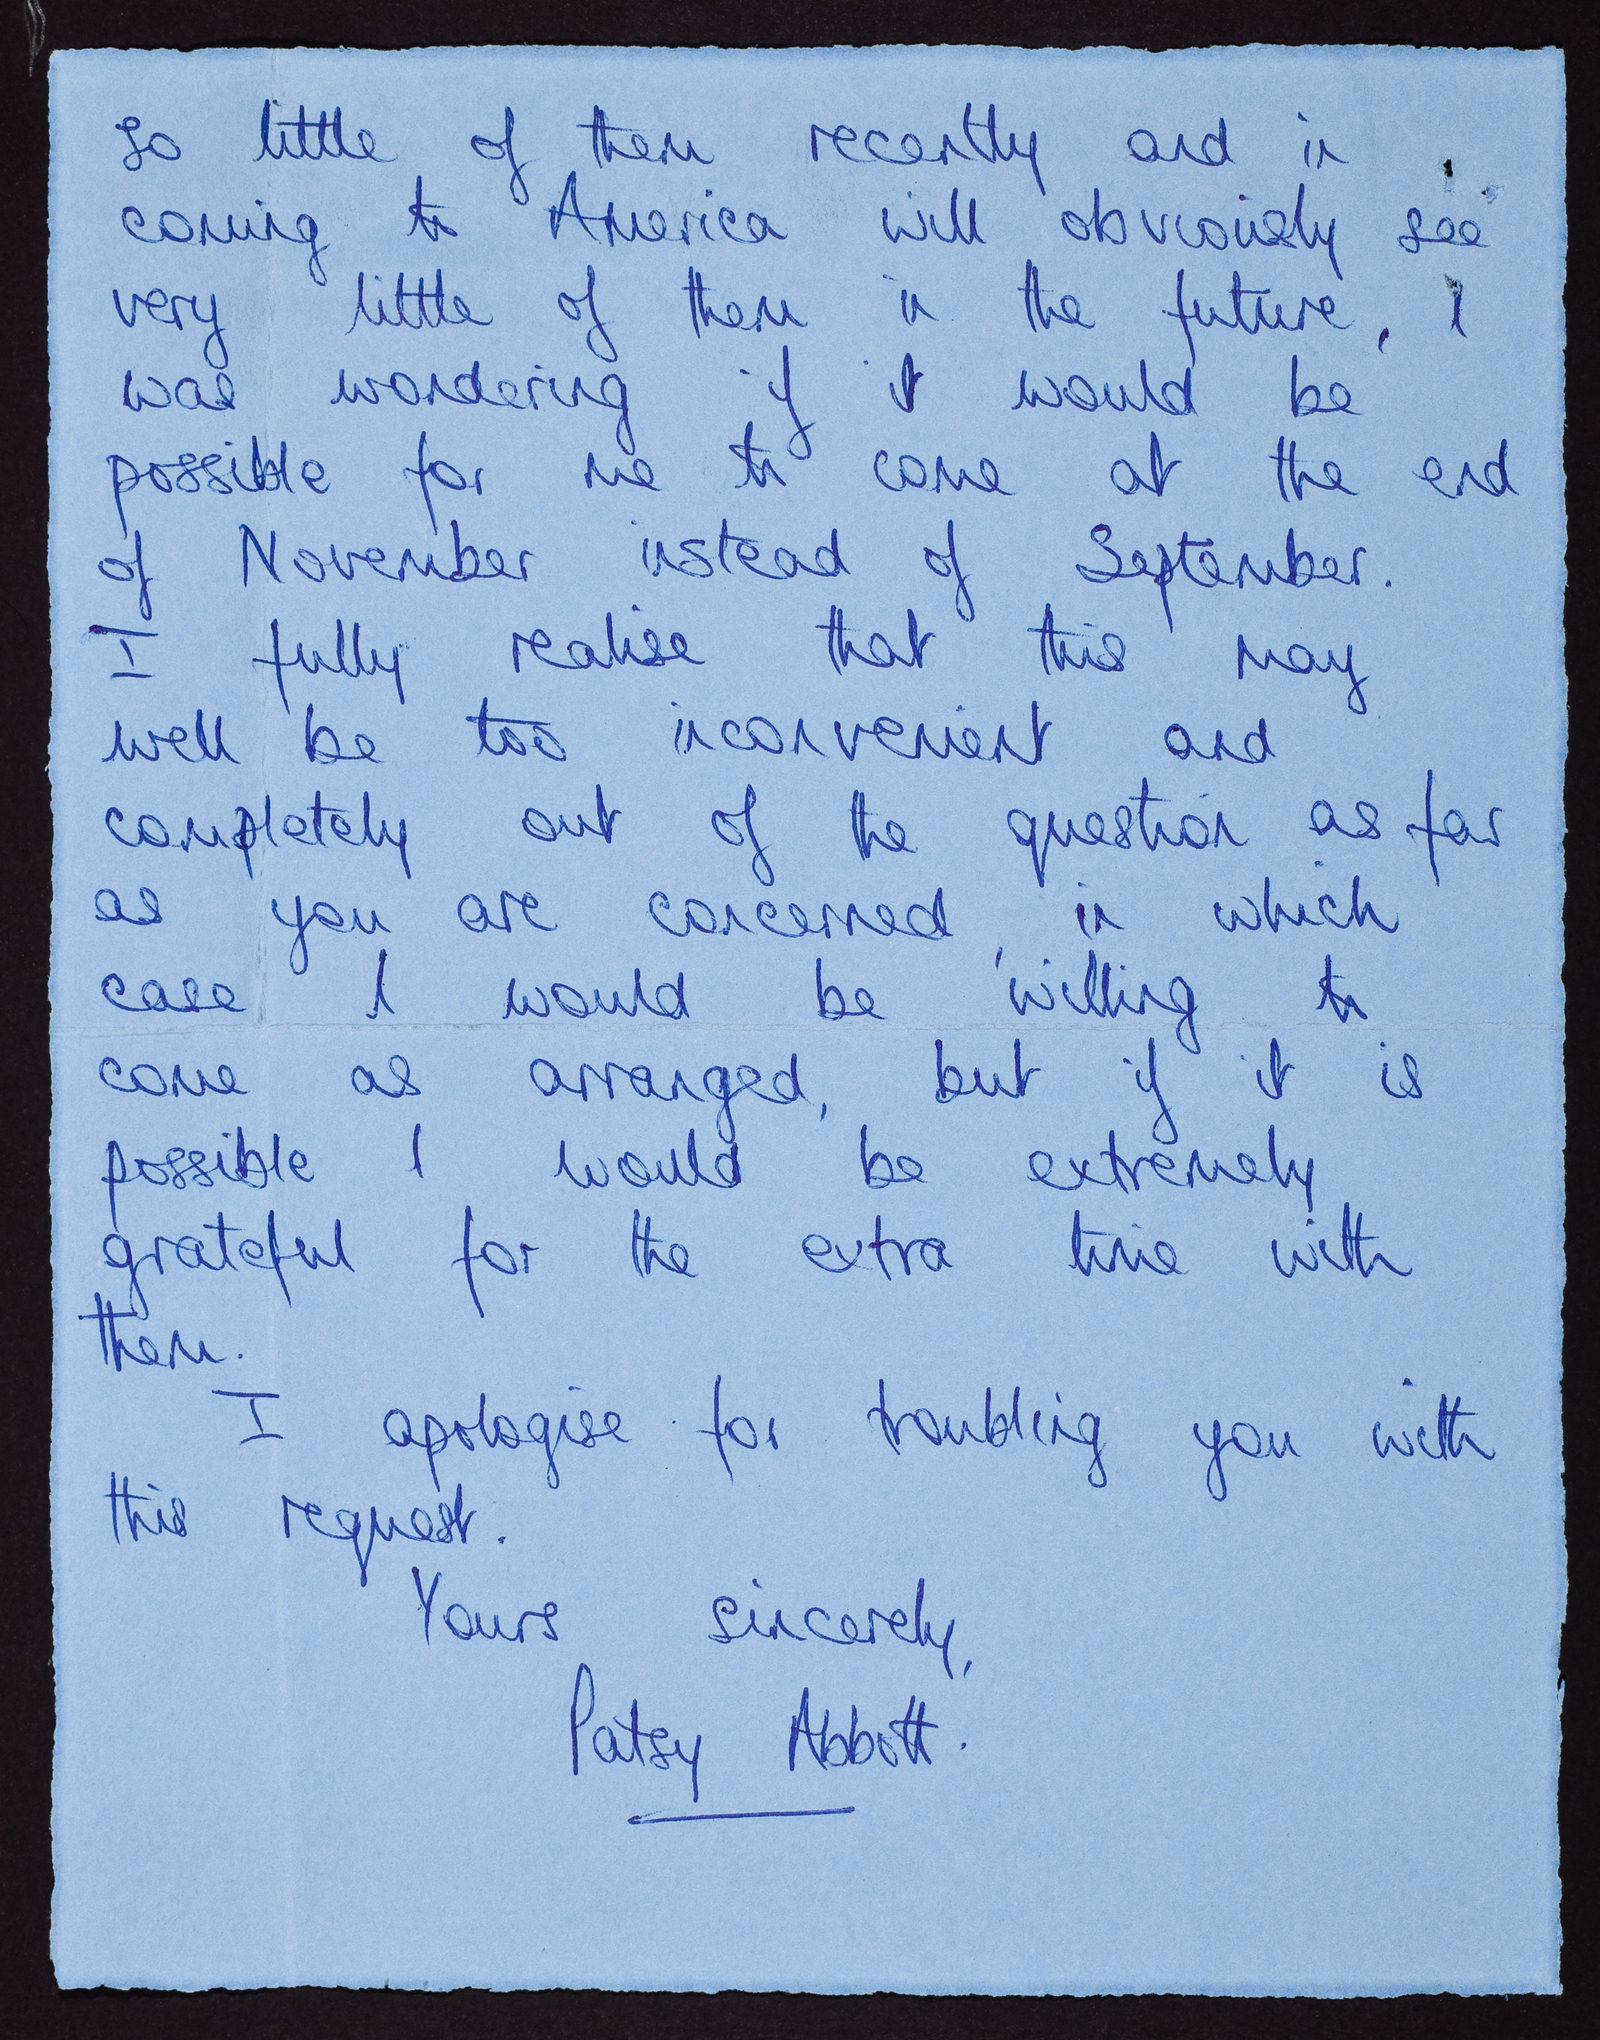 so little of them recently and in
coming to America will obviously see
very little of them in the future, I
was wondering if it would be
possible for me to come at the end
of November instead of September.
I fully realise that this may
well be too inconvenient and
completely out of the question as far
as you are concerned, in which
case I would be willing to
come as arranged, but if it is
possible I would be extremely
grateful for the extra time with
them.
I apologise for troubling you with
this request.
Yours sincerely,
Patsy Abbott.